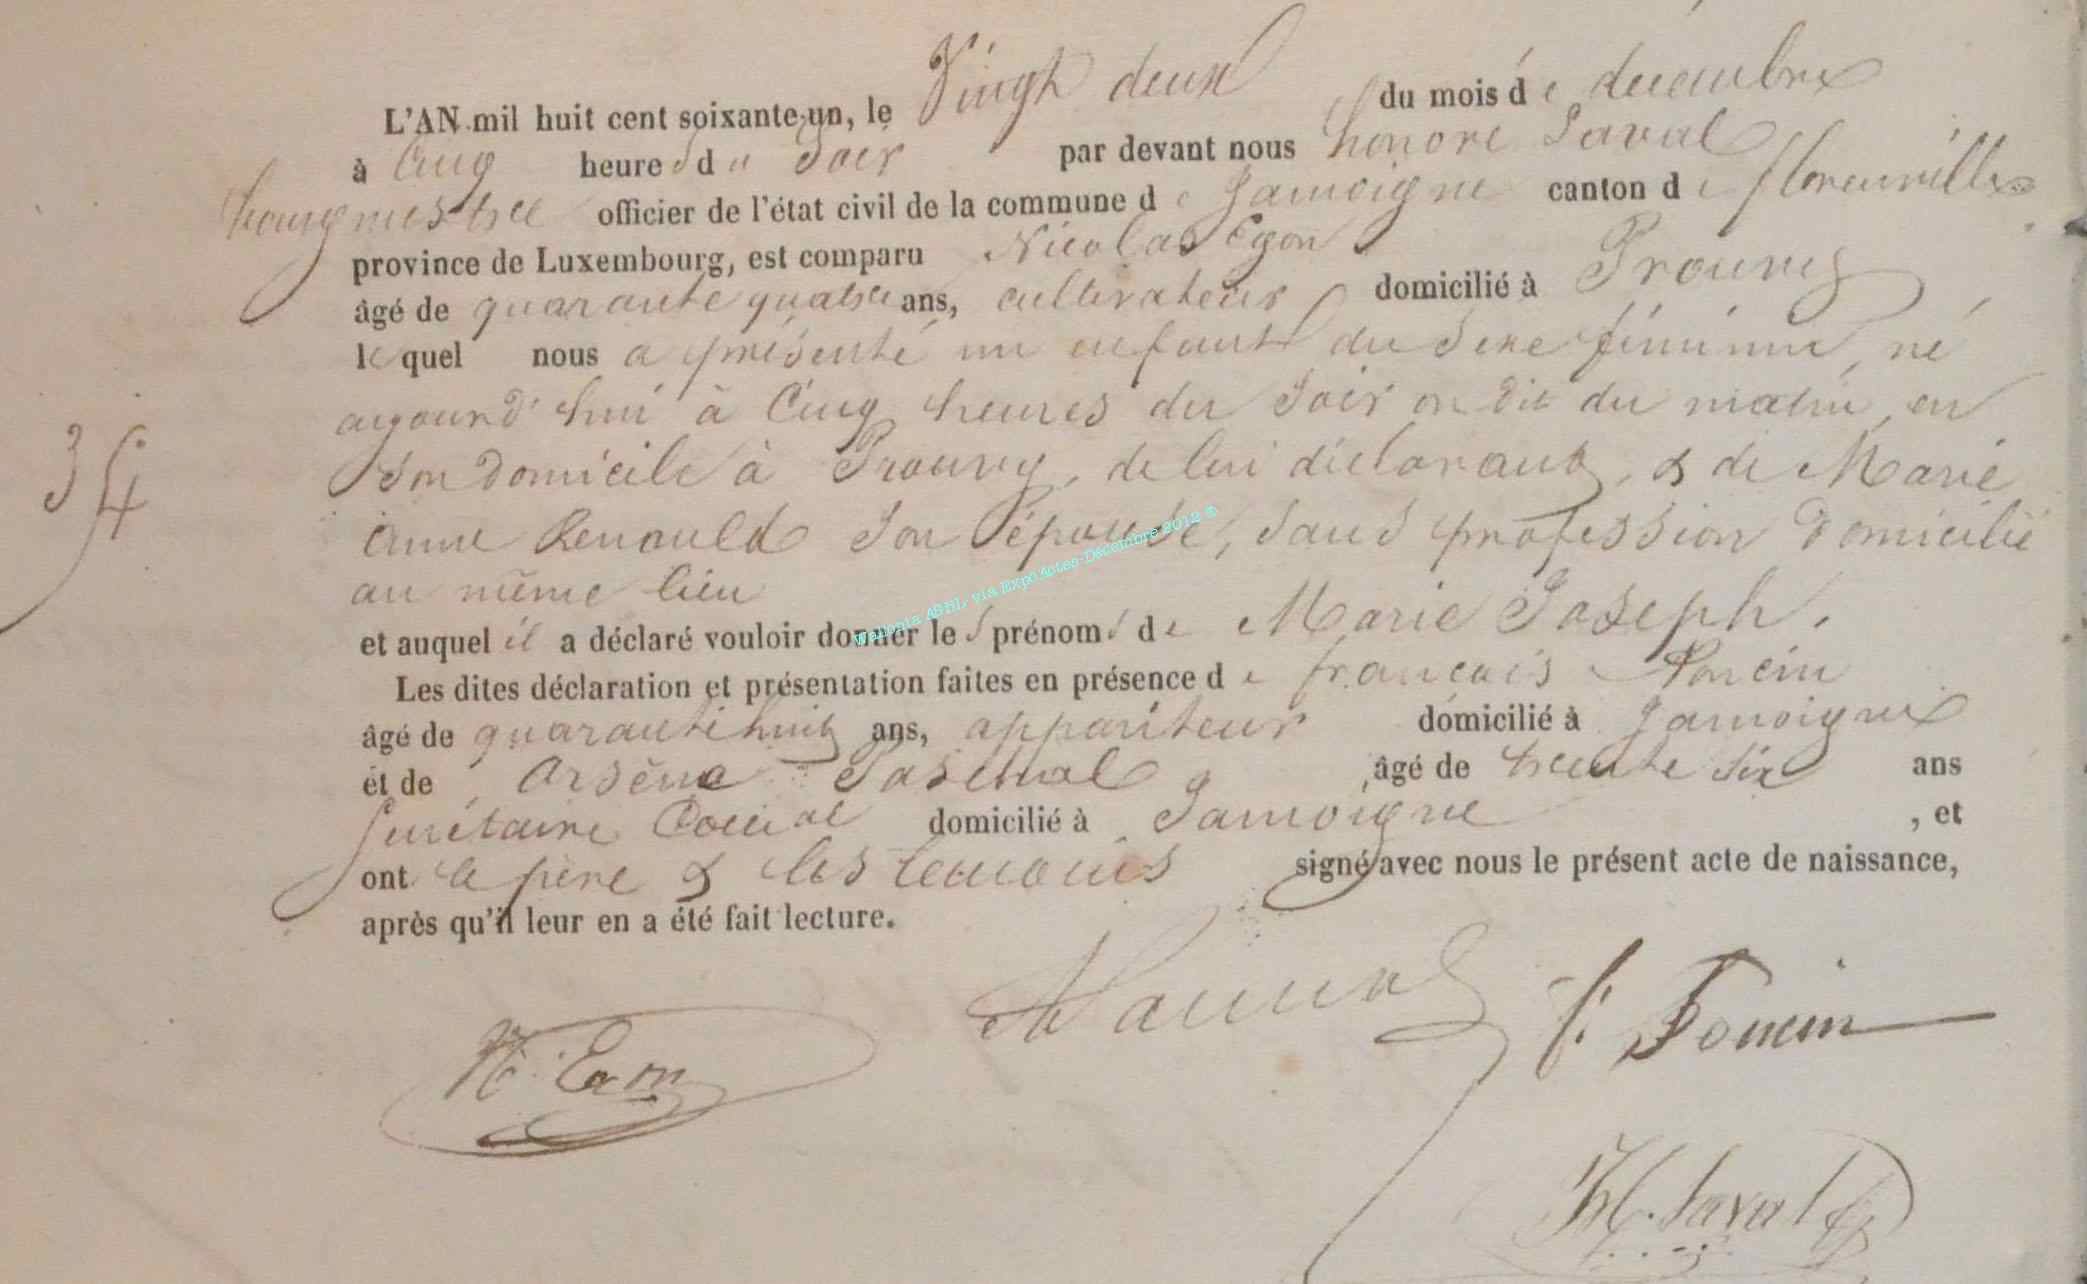 L'AN mil huit cent soixante-un, le Vingt deux du mois de décembre
à Cinq heures du Soir par devant nous honoré Laval
bourgmestre officier de l'état civil de la commune de Jamoigne canton de florenville
province de Luxembourg, est comparu Nicolas Egon
âgé de quarante quatre ans, cultivateur domicilié à Prouvy
lequel nous a présenté un enfant du Sexe féminin, né
aujourd'hui à Cinq heures du Soir on dit du matin, en
son domicile à Prouvy, de lui déclarant, & de Marie
Anne Renauld Son épouse, sans profession domicilié
au même lieu
et auquel il a déclaré vouloir donner les prénoms de Marie Joseph.
Les dites déclaration et présentation faites en présence de françois Poncin
âgé de quarante huit ans, appariteur domicilié à Jamoigne
et de Arsène âgé de trente six ans
Secrétaire Comal domicilié à Jamoigne , et
ont le père & les témoins signé avec nous le présent acte de naissance,
après qu'il leur en a été fait lecture.
34
Wallonia ASBL via Expo Actes-Décembre 2012 ®
N. Egon
f. Poncin
H. Laval